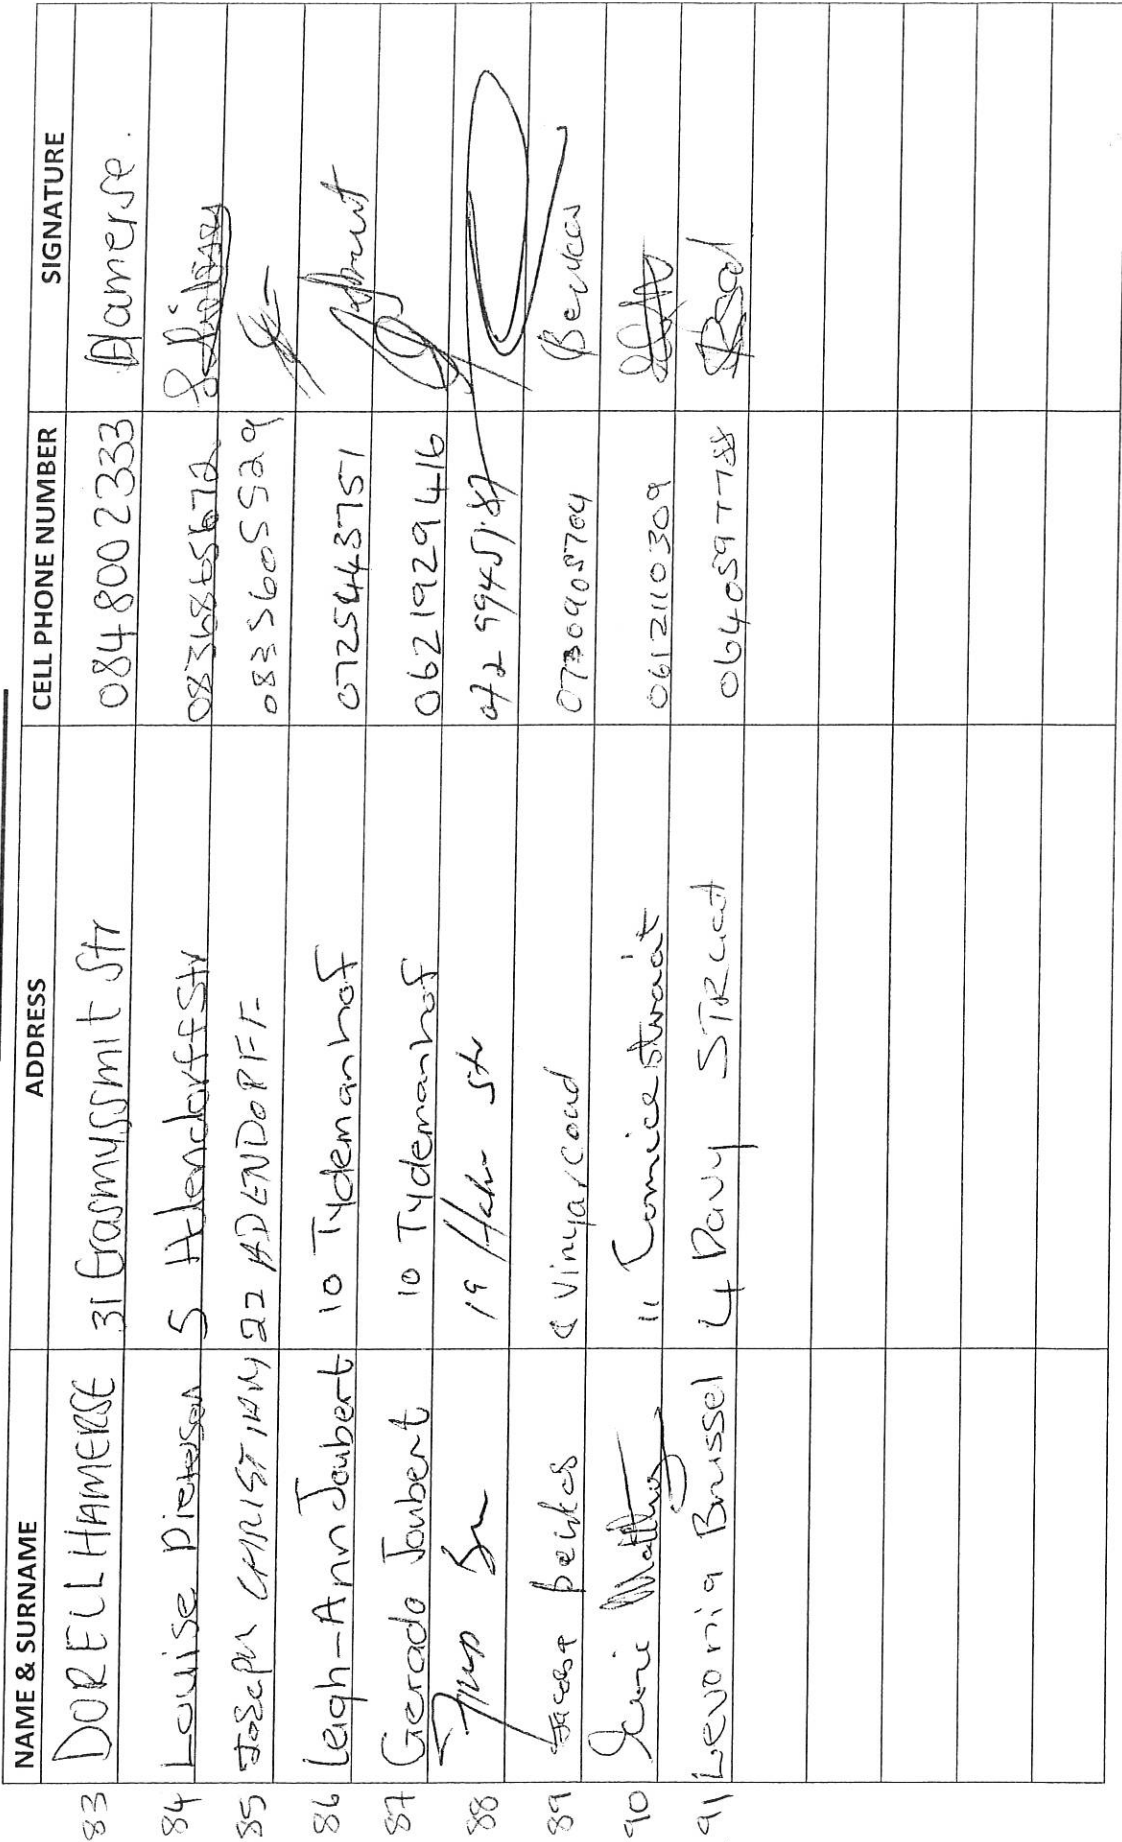 NAME & SURNAME ADDRESS CELL PHONE NUMBER SIGNATURE
83 DORELL HAMERSE 31 Erasmussmit Str 0848002333 DHamerse.
84 Louise Pietersen 5 Adendorff Str
85 JOSEPH CHRISTIAN 22 ADENDORFF 0833605529
86 Leigh-Ann Joubert 10 Tydemanhof 0725443751
87 Gerado Joubert 10 Tydemanhof 0621929416
88 19 Str
89 Jacoba Beukes Vinyarcoud 0730905704 Beukes
90 Matthys 11 straat 0612110309
91 Levonia Brussel 4 Davy STReet